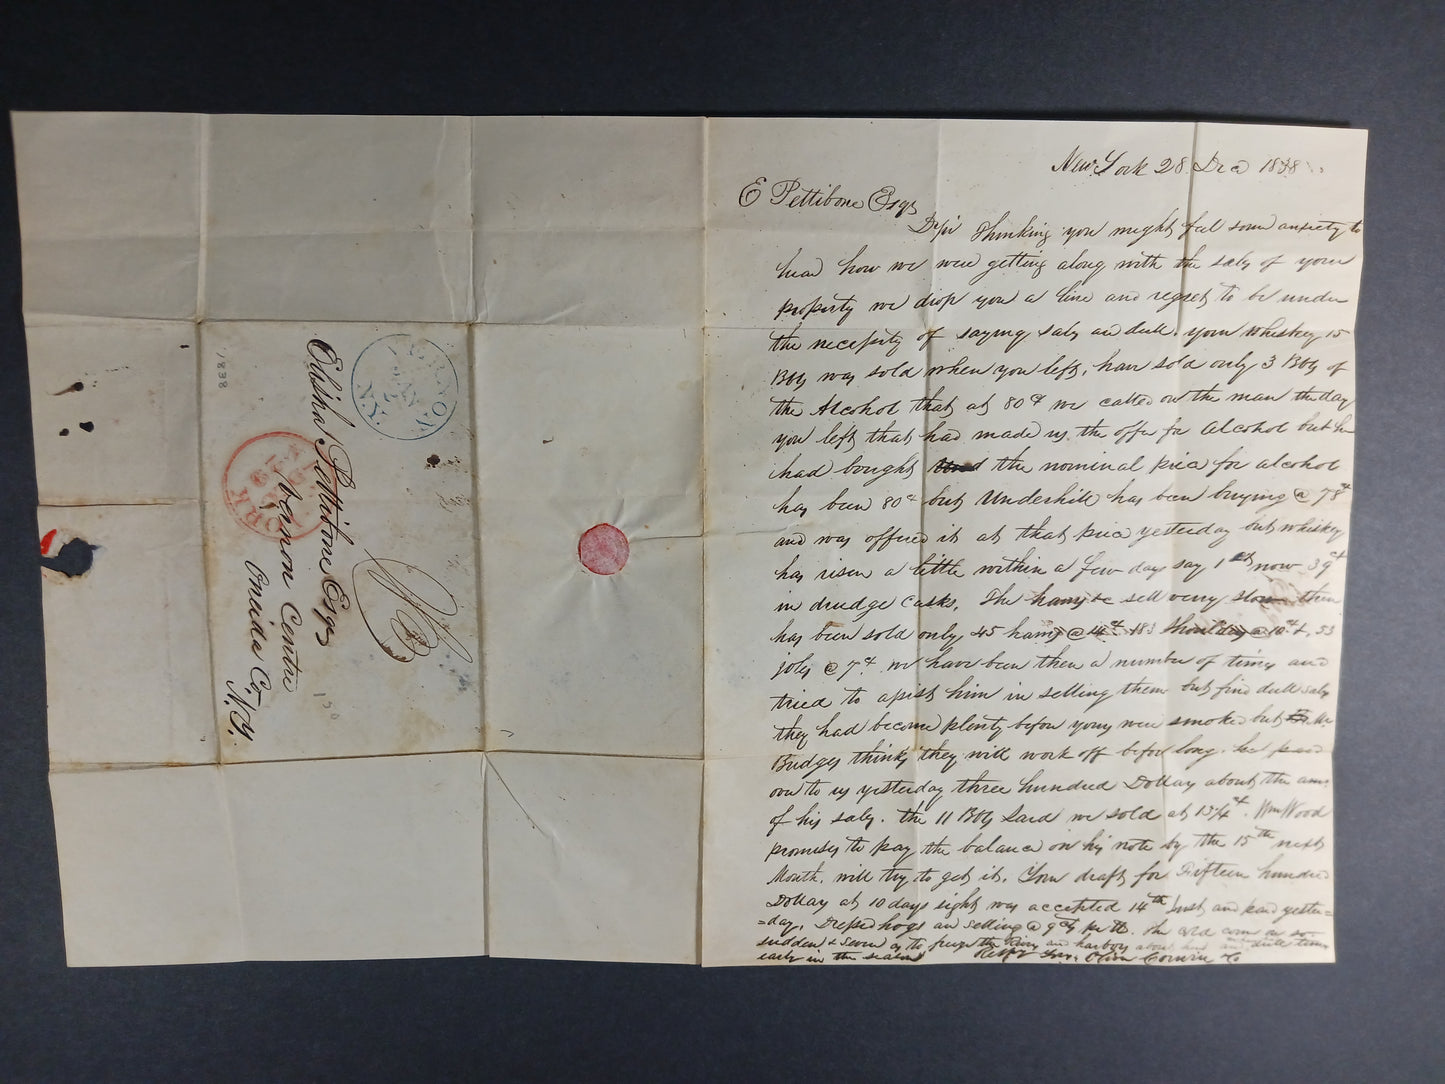 New York 28 Dec 1838
E Pettibone Esqr
D Sir Thinking you might feel some anxiety to
hear how we were getting along with the sales of your
property we drop you a line and regret to be under
the necessity of saying sales are dull. your Whiskey 15
Bbls was sold when you left, have sold only 3 Bbls of
the Alcohol that at 80 cts we called on the man the day
you left that had made us the offer for Alcohol but he
had bought the nominal price for alcohol
has been 80 cts but Underhill has been buying @ 78 cts
and was offered it at that price yesterday but whiskey
has risen a little within a few days say 1 ct, now 39 cts
in drudge casks. The hams &c sell very slow there
has been sold only 45 hams @ 14 cts 183 shoulders @ 10 cts &, 53
joles @ 7 cts we have been there a number of times and
tried to assist him in selling them but find dull sales
they had become plenty before yours were smoked but Mr
Bridges thinks they will work off before long. he paid
over to us yesterday three hundred Dollars about the amt
of his sales. the 11 Bbls Lard we sold at 13¼ cts. Wm Wood
promises to pay the balance on his note by the 15th next
Month, will try to get it. Your draft for Fifteen hundred
Dollars at 10 days sight was accepted 14th Inst, and paid yester=
=day, Dressed hogs are selling @ 9 cts per lb. The cold come on so
sudden & severe as to freeze the Rivers and harbors about here and dull times
early in the season Respy Yrs. Oliver Corwin & Co
Elisha Pettibone Esqr
Vernon Centre
Oneida Co.
N.Y.
YORK
DEC
29
1838
150